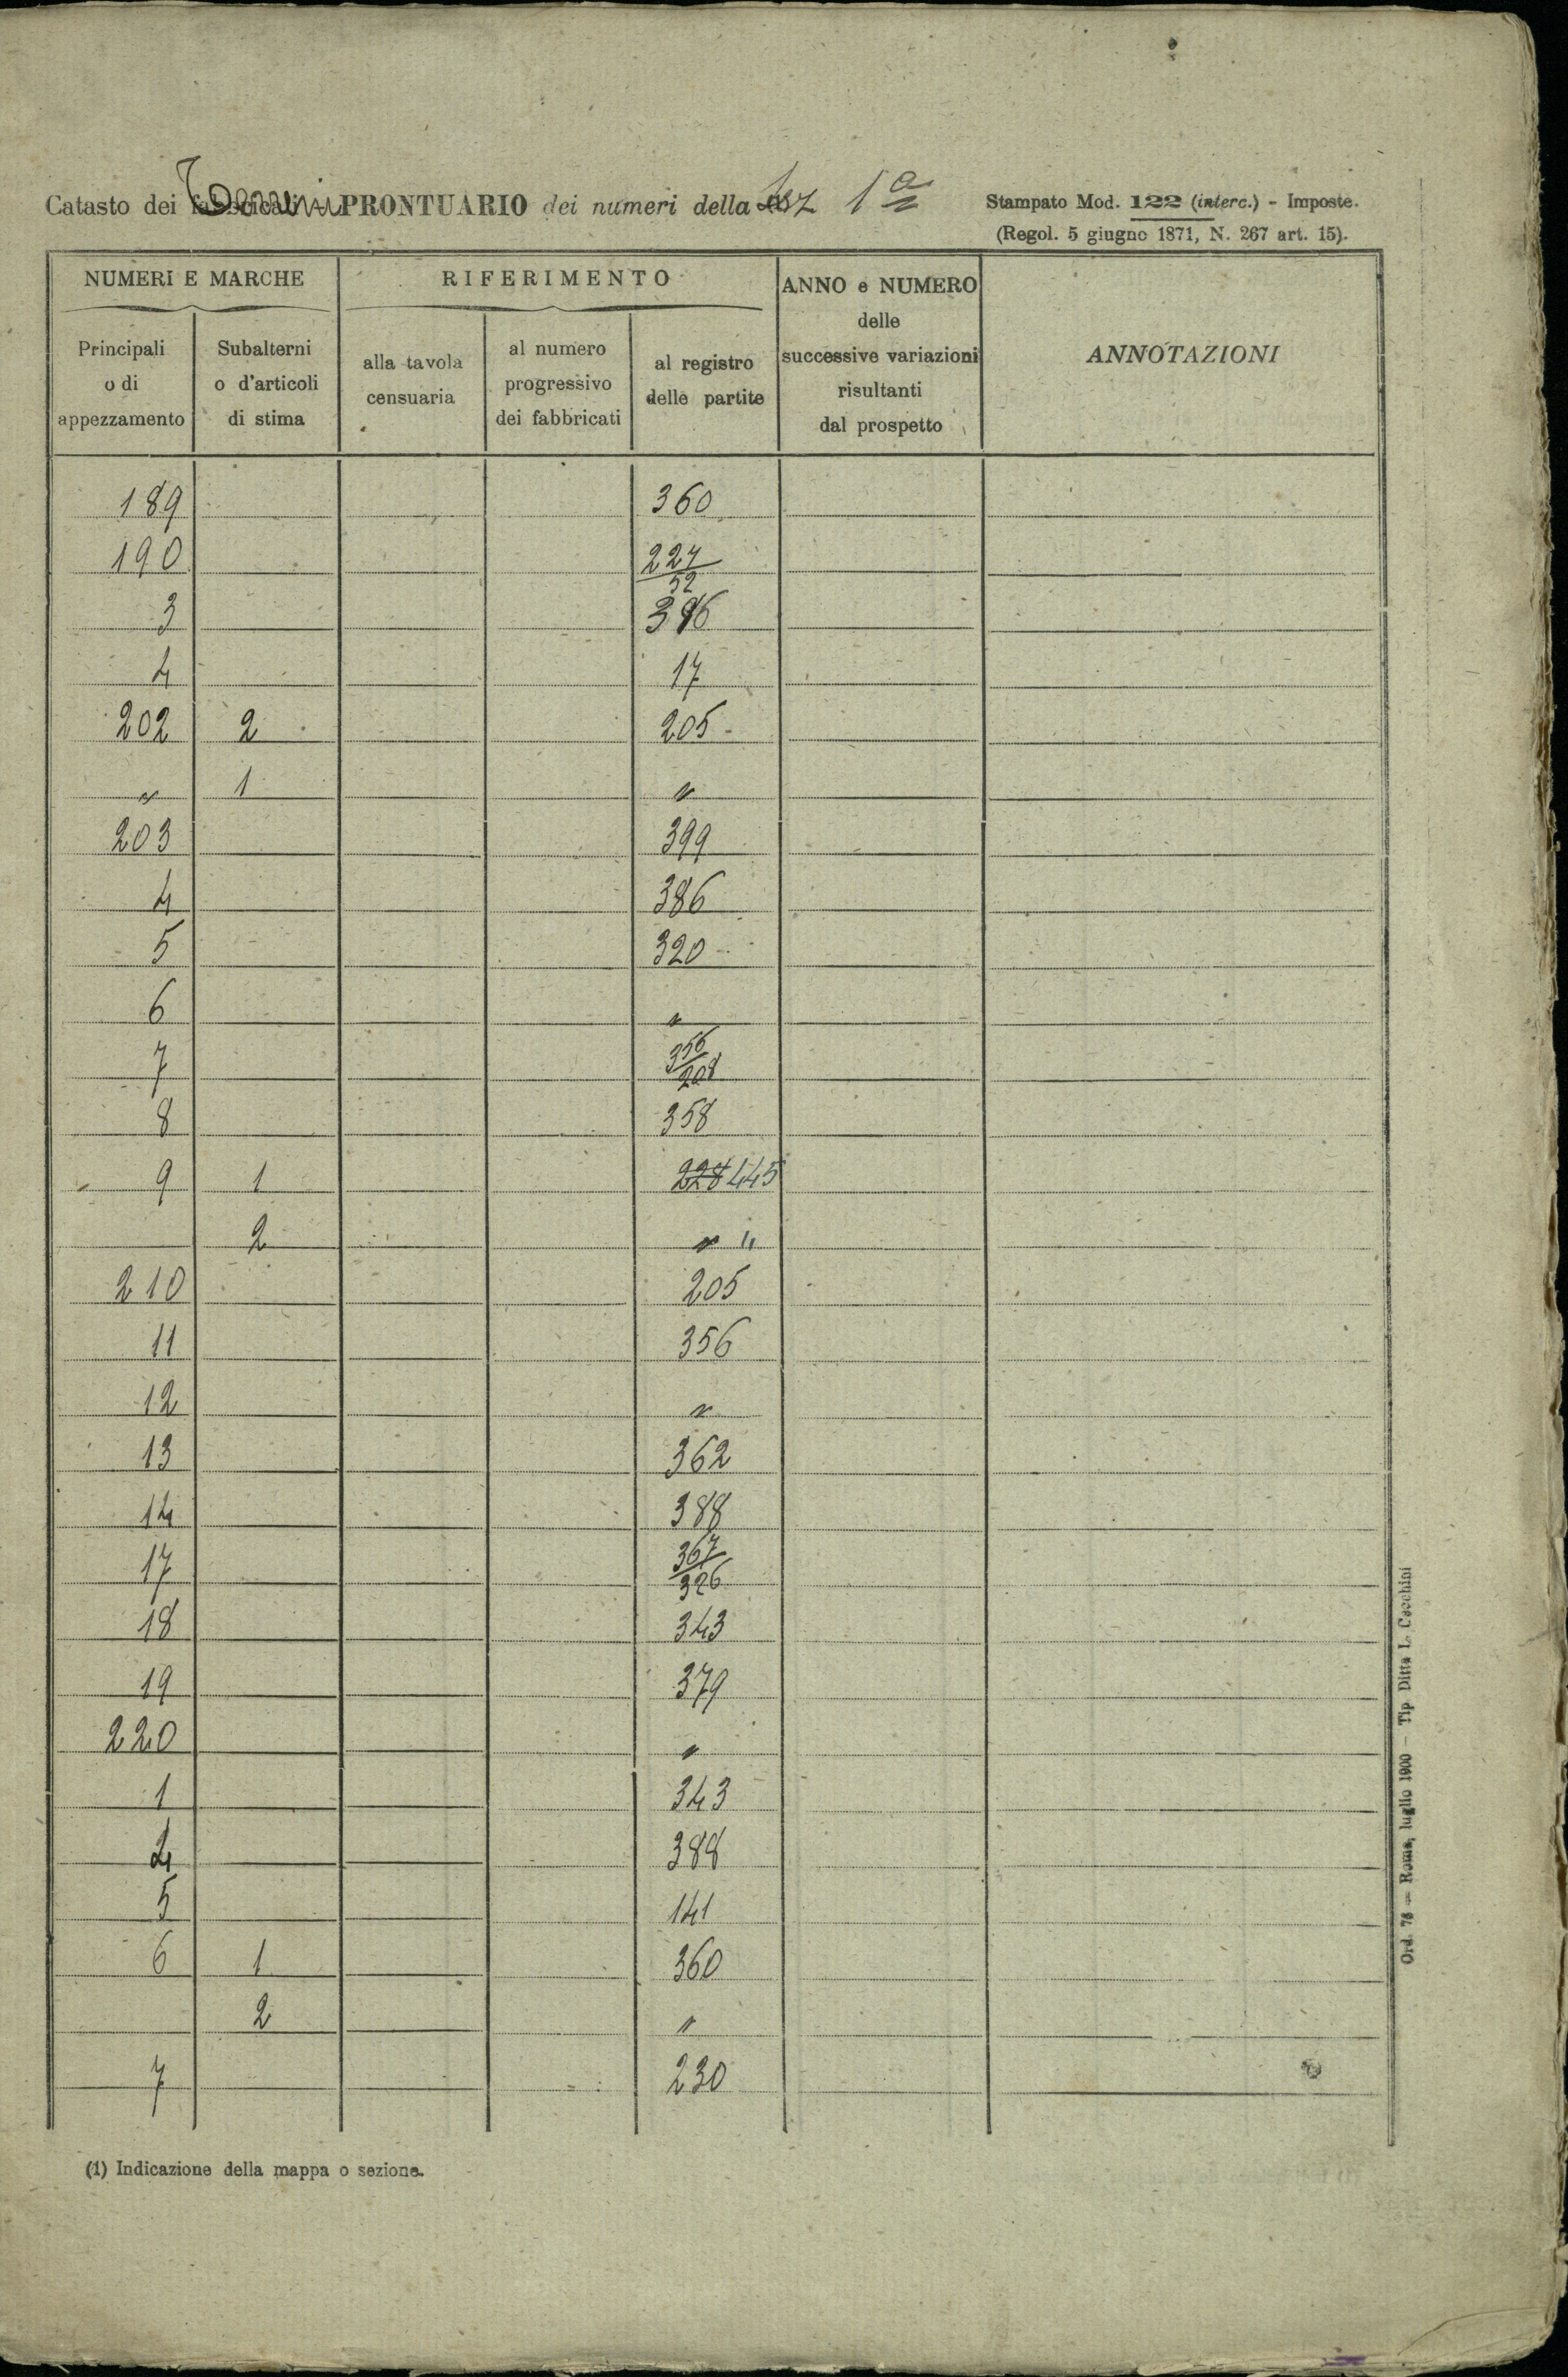 Catasto dei Terreni PRONTUARIO dei numeri della Sez 1ª
Stampato Mod. 122 (interc.) - Imposte.
(Regol. 5 giugno 1871, N. 267 art. 15).
NUMERI E MARCHE
RIFERIMENTO
ANNO e NUMERO delle successive variazioni risultanti dal prospetto
ANNOTAZIONI
Principali o di appezzamento
Subalterni o d'articoli di stima
alla tavola censuaria
al numero progressivo dei fabbricati
al registro delle partite
189 360
190 227/52
3 386
4 17
202 2 205
" 1 "
203 399
4 386
5 320
6 "
7 356/208
8 358
9 1 228 445
2 " "
210 205
11 356
12 "
13 362
14 388
17 367/326
18 343
19 379
220 "
1 343
4 388
5 141
6 1 360
2 "
7 230
(1) Indicazione della mappa o sezione.
Ord. 78 — Roma, luglio 1900 — Tip Ditta L. Cecchini